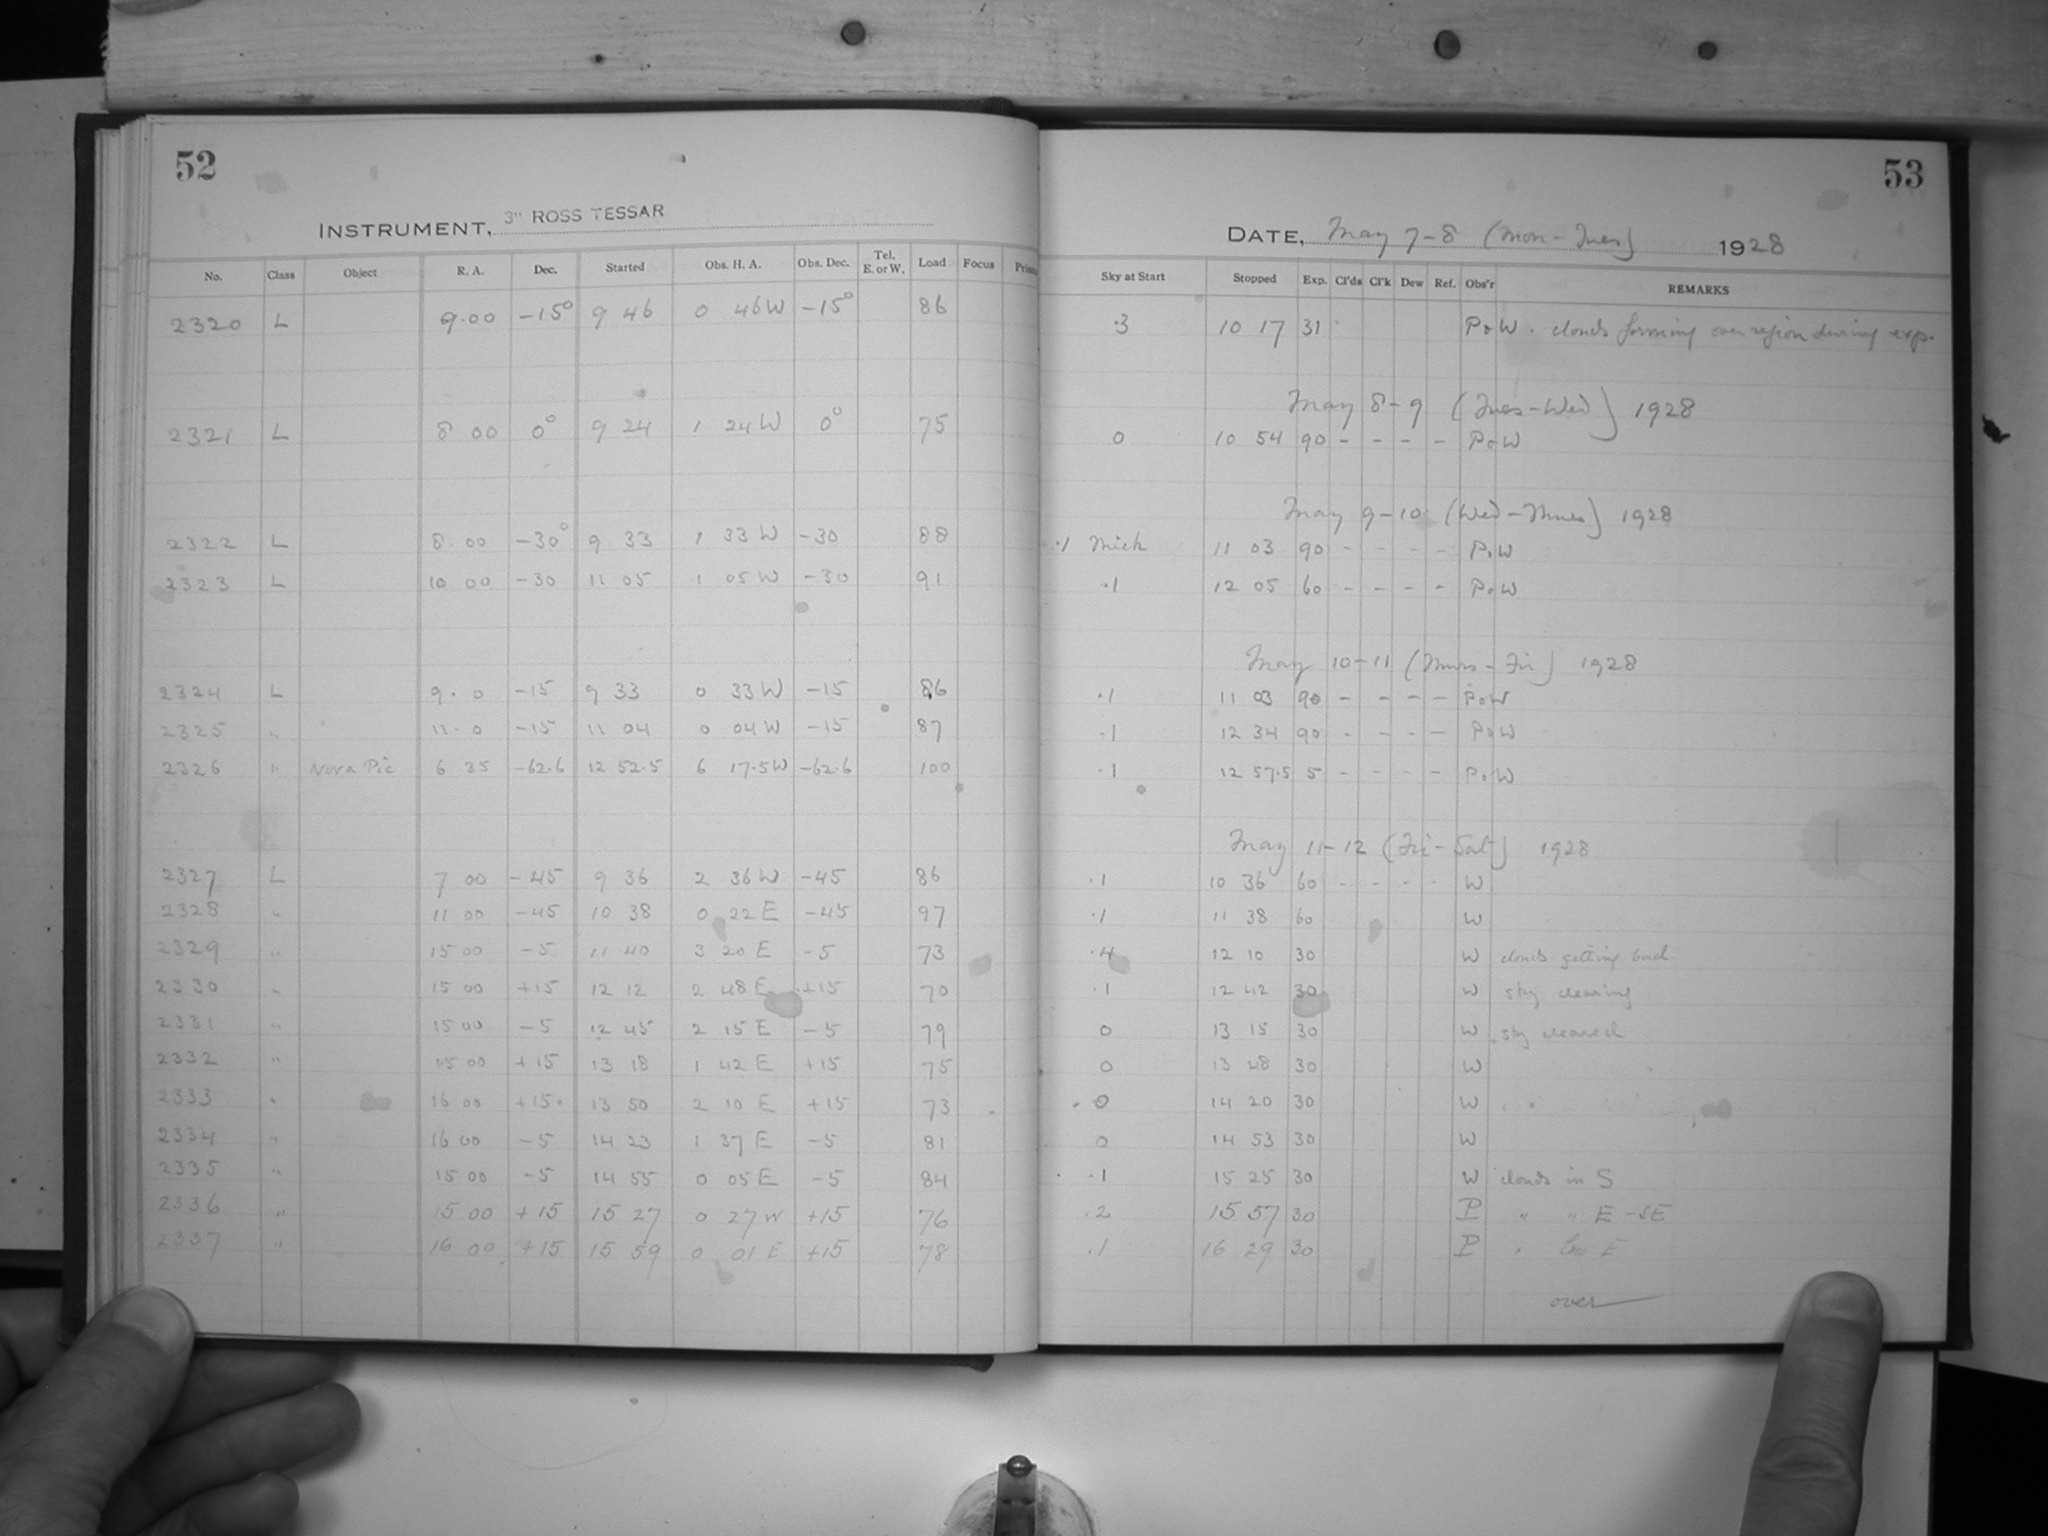 52
INSTRUMENT, 3" ROSS TESSAR
No. Class Object R. A. Dec. Started Obs. H. A. Obs. Dec. Tel. E. or W. Load Focus Prism
2320 L 9.00 -15° 9 46 0 46W -15° 86
2321 L 8 00 0° 9 24 1 24W 0° 75
2322 L 8.00 -30° 9 33 1 33W -30 88
2323 L 10 00 -30 11 05 1 05W -30 91
2324 L 9.0 -15 9 33 0 33W -15 86
2325 " 11.0 -15 11 04 0 04W -15 87
2326 " Nova Pic 6 35 -62.6 12 52.5 6 17.5W -62.6 100
2327 L 7 00 -45 9 36 2 36W -45 86
2328 " 11 00 -45 10 38 0 22E -45 97
2329 " 15 00 -5 11 40 3 20E -5 73
2330 " 15 00 +15 12 12 2 48E +15 70
2331 " 15 00 -5 12 45 2 15E -5 79
2332 " 15 00 +15 13 18 1 42E +15 75
2333 " 16 00 +15 13 50 2 10E +15 73
2334 " 16 00 -5 14 23 1 37E -5 81
2335 " 15 00 -5 14 55 0 05E -5 84
2336 " 15 00 +15 15 27 0 27W +15 76
2337 " 16 00 +15 15 59 0 01E +15 78
53
DATE, May 7-8 (Mon-Tues) 1928
Sky at Start Stopped Exp. Cl'ds Cl'k Dew Ref. Obs'r REMARKS
.3 10 17 31 P.W. clouds forming over region during exp.
May 8-9 (Tues-Wed) 1928
0 10 54 90 - - - - P.W
May 9-10 (Wed-Thurs) 1928
.1 thick 11 03 90 - - - - P.W
.1 12 05 60 - - - - P.W
May 10-11 (Thurs-Fri) 1928
.1 11 03 90 - - - - P.W
.1 12 34 90 - - - - P.W
.1 12 57.5 5 - - - - P.W
May 11-12 (Fri-Sat) 1928
.1 10 36 60 - - - - W
.1 11 38 60 W
.4 12 10 30 W clouds getting bad
.1 12 42 30 W sky clearing
0 13 15 30 W sky cleared
0 13 48 30 W
0 14 20 30 W
0 14 53 30 W
.1 15 25 30 W clouds in S
.2 15 57 30 P " " E-SE
.1 16 29 30 P " low E
over